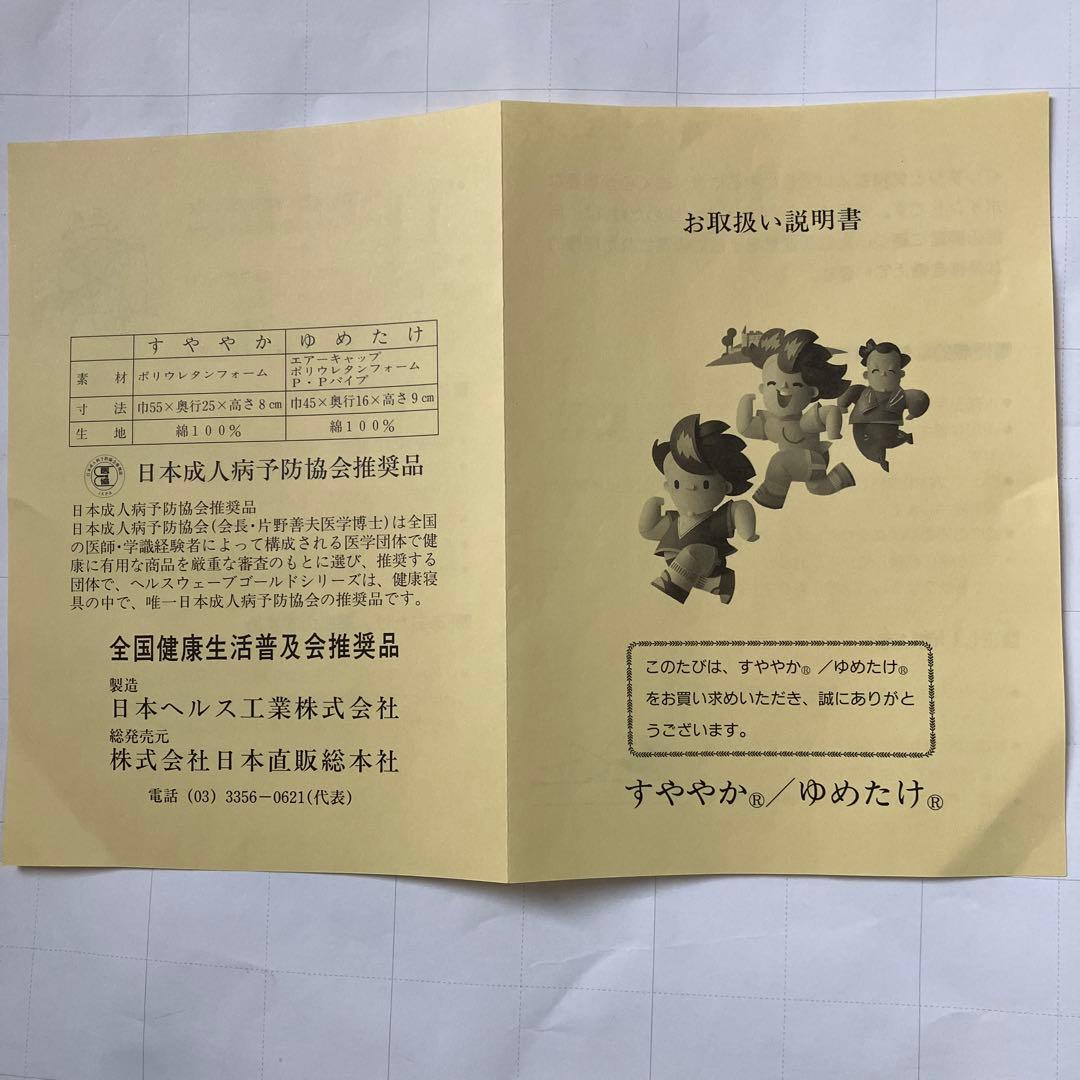 すややか
ゆめたけ
素材
ポリウレタンフォーム
エアーキャップ
ポリウレタンフォーム
P・Pパイプ
寸法
巾55×奥行25×高さ8cm
巾45×奥行16×高さ9cm
生地
綿100%
綿100%
日本成人病予防協会推奨品
日本成人病予防協会推奨品
日本成人病予防協会(会長・片野善夫医学博士)は全国
の医師・学識経験者によって構成される医学団体で健
康に有用な商品を厳重な審査のもとに選び、推奨する
団体で、ヘルスウェーブゴールドシリーズは、健康寝
具の中で、唯一日本成人病予防協会の推奨品です。
全国健康生活普及会推奨品
製造
日本ヘルス工業株式会社
総発売元
株式会社日本直販総本社
電話 (03) 3356-0621(代表)
お取扱い説明書
このたびは、すややか®／ゆめたけ®
をお買い求めいただき、誠にありがと
うございます。
すややか®／ゆめたけ®